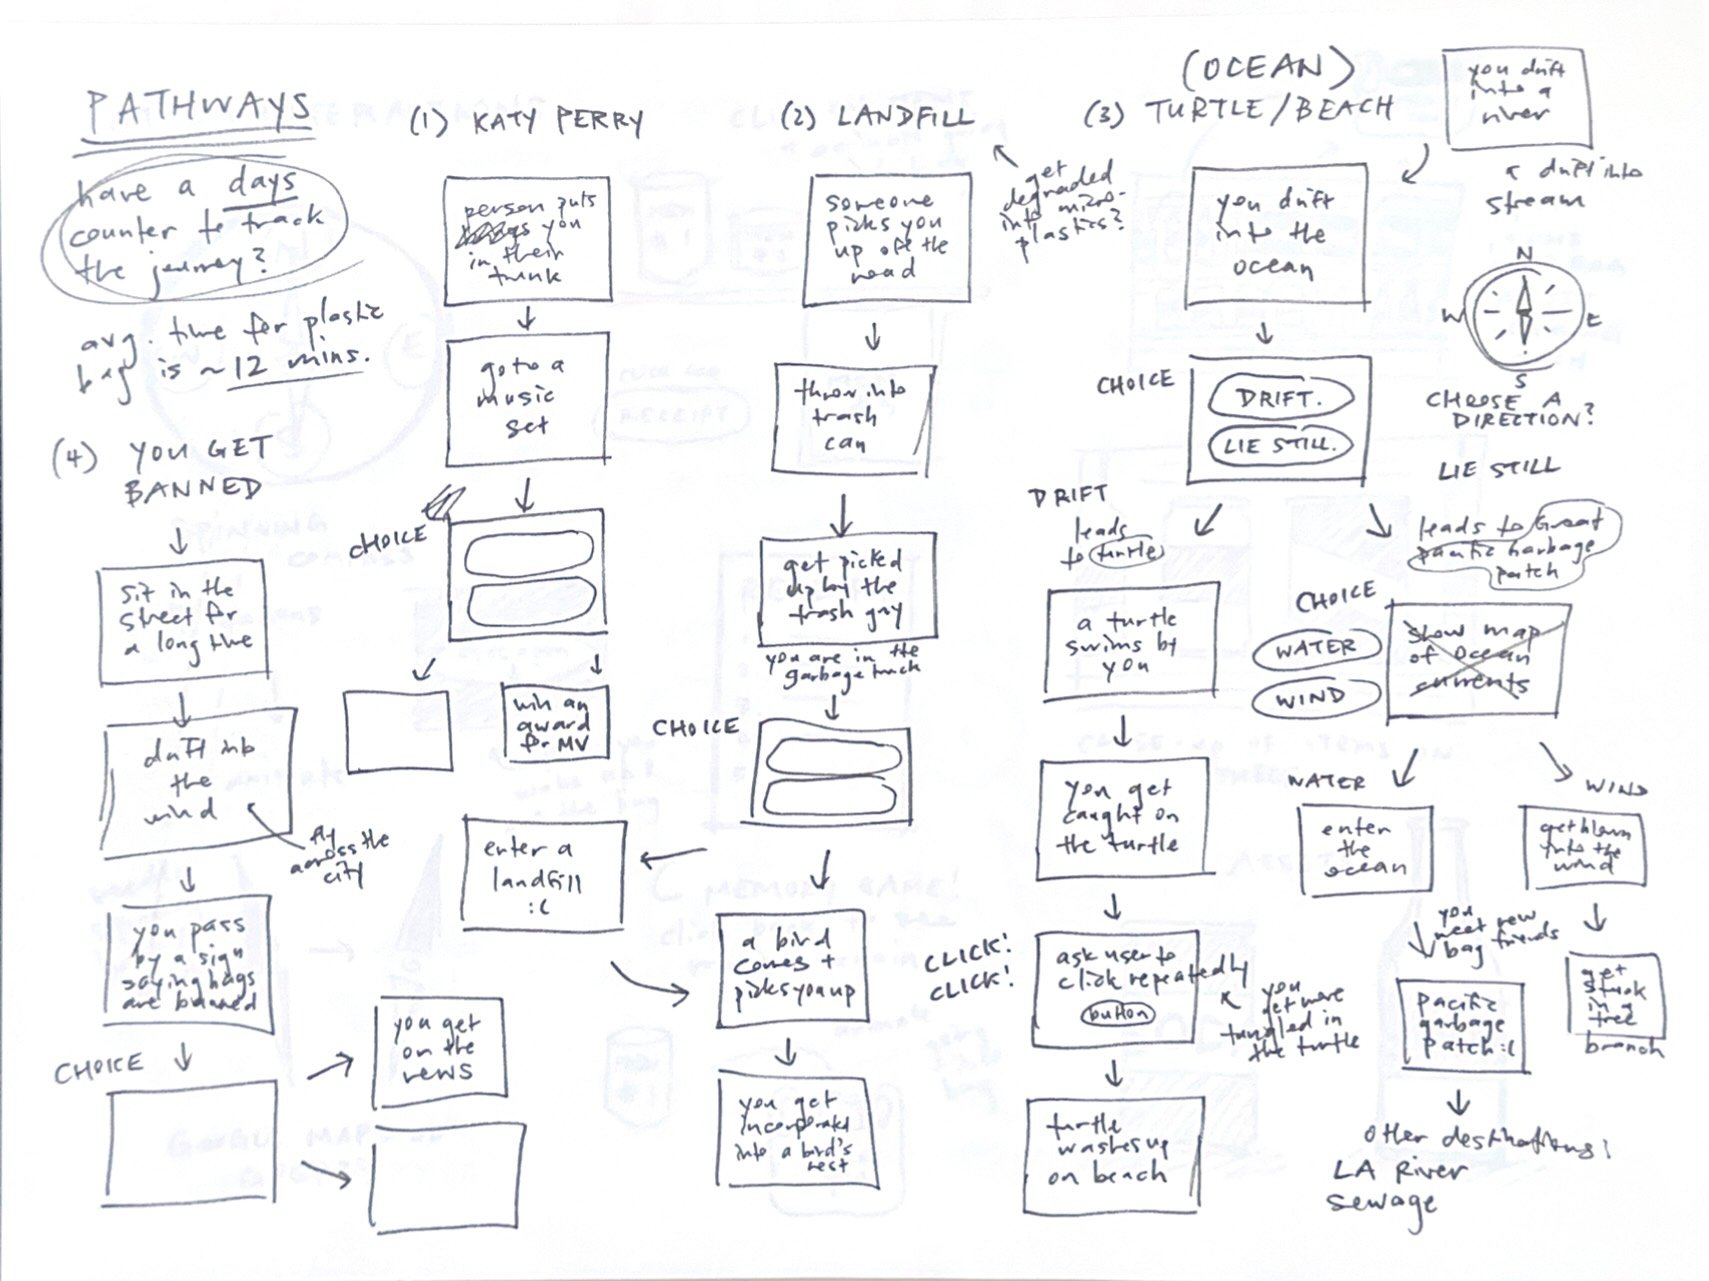 PATHWAYS
have a days
counter to track
the journey?
avg. time for plastic
bag is ~12 mins.
(1) KATY PERRY
person puts
you
in their
trunk
go to a
music
set
CHOICE
win an
award
for MV
(2) LANDFILL
someone
picks you
up off the
road
get
degraded
into micro-
plastics?
throw into
trash
can
get picked
up by the
trash guy
you are in the
garbage truck
CHOICE
enter a
landfill
:(
a bird
comes +
picks you up
you get
incorporated
into a bird's
nest
(OCEAN)
(3) TURTLE/BEACH
you drift
into a
river
drift into
stream
you drift
into the
ocean
N
W E
S
CHOOSE A
DIRECTION?
CHOICE
DRIFT.
LIE STILL.
DRIFT
leads
to turtle
a turtle
swims by
you
you get
caught on
the turtle
CLICK!
CLICK!
ask user to
click repeatedly
button
you
get more
tangled in
the turtle
turtle
washes up
on beach
LIE STILL
leads to Great
pacific garbage
patch
CHOICE
WATER
WIND
show map
of ocean
currents
WATER
enter
the
ocean
you
meet new
bag friends
pacific
garbage
patch :(
WIND
get blown
into the
wind
get
stuck
in a
tree
branch
other destinations:
LA River
sewage
(4) YOU GET
BANNED
sit in the
street for
a long time
drift into
the
wind
fly
across the
city
you pass
by a sign
saying bags
are banned
CHOICE
you get
on the
news